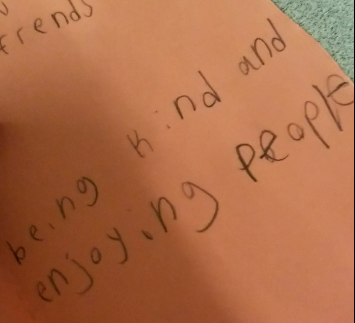 frends
being kind and
enjoying people